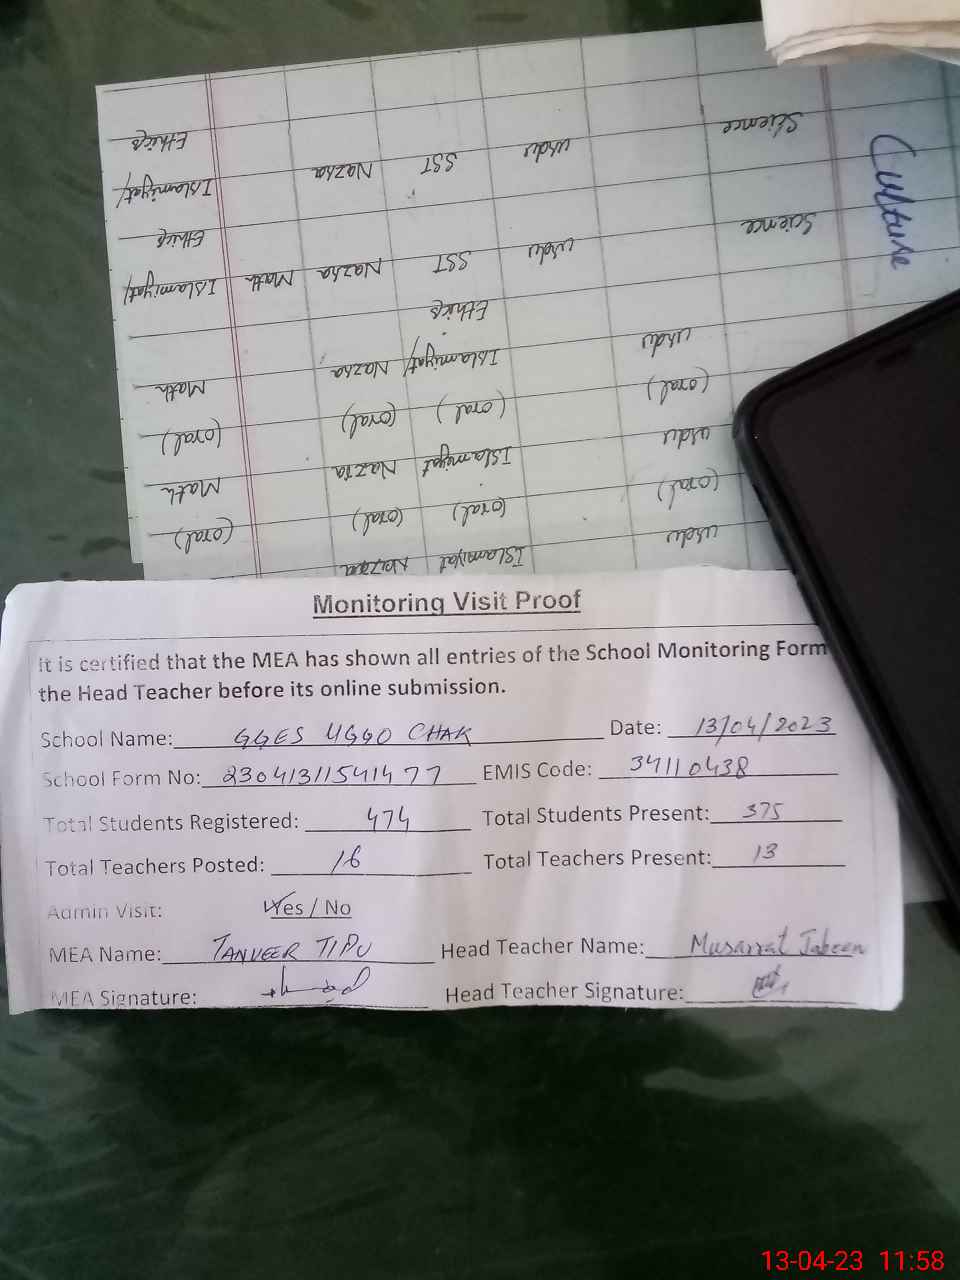 Ethics
Science
Urdu
SST
Nazra
Islamiyat/
Culture
Ethics
Science
Urdu
SST
Nazra
Math
Islamiyat/
Ethics
Urdu
Islamiyat/
Nazra
Math
(oral)
(oral)
(oral)
(oral)
Urdu
Islamiyat
Nazra
Math
(oral)
(oral)
(oral)
(oral)
Urdu
Islamiyat
Nazra
Monitoring Visit Proof
It is certified that the MEA has shown all entries of the School Monitoring Form
the Head Teacher before its online submission.
School Name: GGES UGGO CHAK Date: 13/04/2023
School Form No: 23041311541477 EMIS Code: 34110438
Total Students Registered: 474 Total Students Present: 375
Total Teachers Posted: 16 Total Teachers Present: 13
Admin Visit: Yes / No
MEA Name: TANVEER TIPU Head Teacher Name: Musarrat Jabeen
MEA Signature: Head Teacher Signature:
13-04-23 11:58